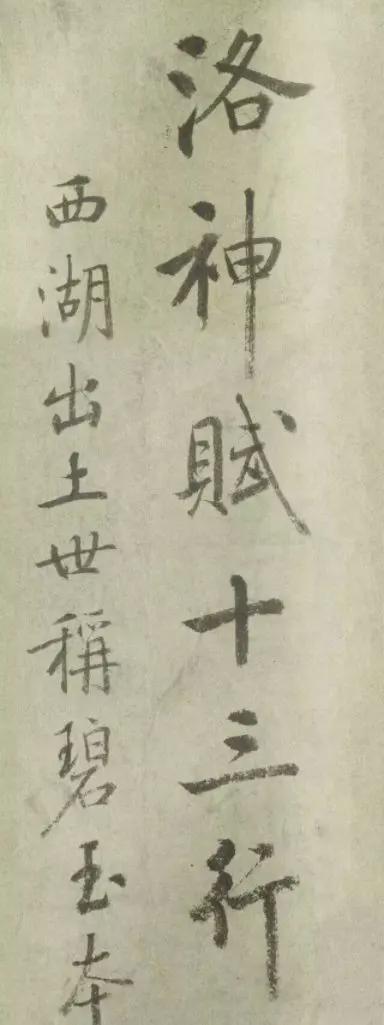 洛神賦十三行
西湖出土世稱碧玉本